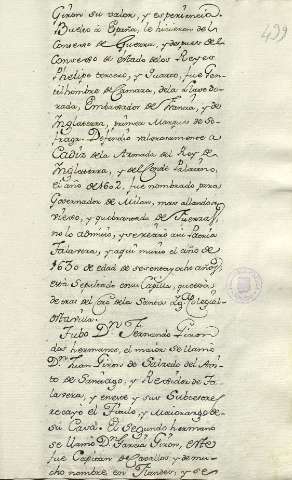 499
Giron su valor, y esperiencia.
Buelto à España, le hicieron del
Consexo de Guerra, y despues del
Consexo de Estado de los Reyes
Phelipe tercero, y Quarto, fue Gen-
tilhombre de Camara, de la llave do-
rada, Embaxador de Francia, y de
Inglaterra, primer Marques de So-
fraga. Defendio valerosamente a
Cadiz de la Armada del Rey de
Inglaterra, y del Conde Palatino,
el año de 1602, fue nombrado para
Governador de Milan, mas allandose
viexo, y quebrantado de Fuerzas,
no lo admitio, y se retirò a su Patria
Talavera, y aqui murio el año de
1630 de edad de setenta y ocho años,
està Sepultado en su Capilla, que està
detras del Coro de la Santa Yg.ª Colegial
Tubo D.n Fernando Giron
dos hermanos, el maior se llamò
D.n Juan Giron de Salzedo del Avi-
to de Santiago, y Rexidor de Ta-
lavera, y en este y sus Subcesores
recayo el Titulo, y Maiorazgo de
su Casa. El segundo hermano
se llamò D.n Garcia Giron, este
fue Capitan de Cavallos, y de mu-
cho nombre en Flandes, y se